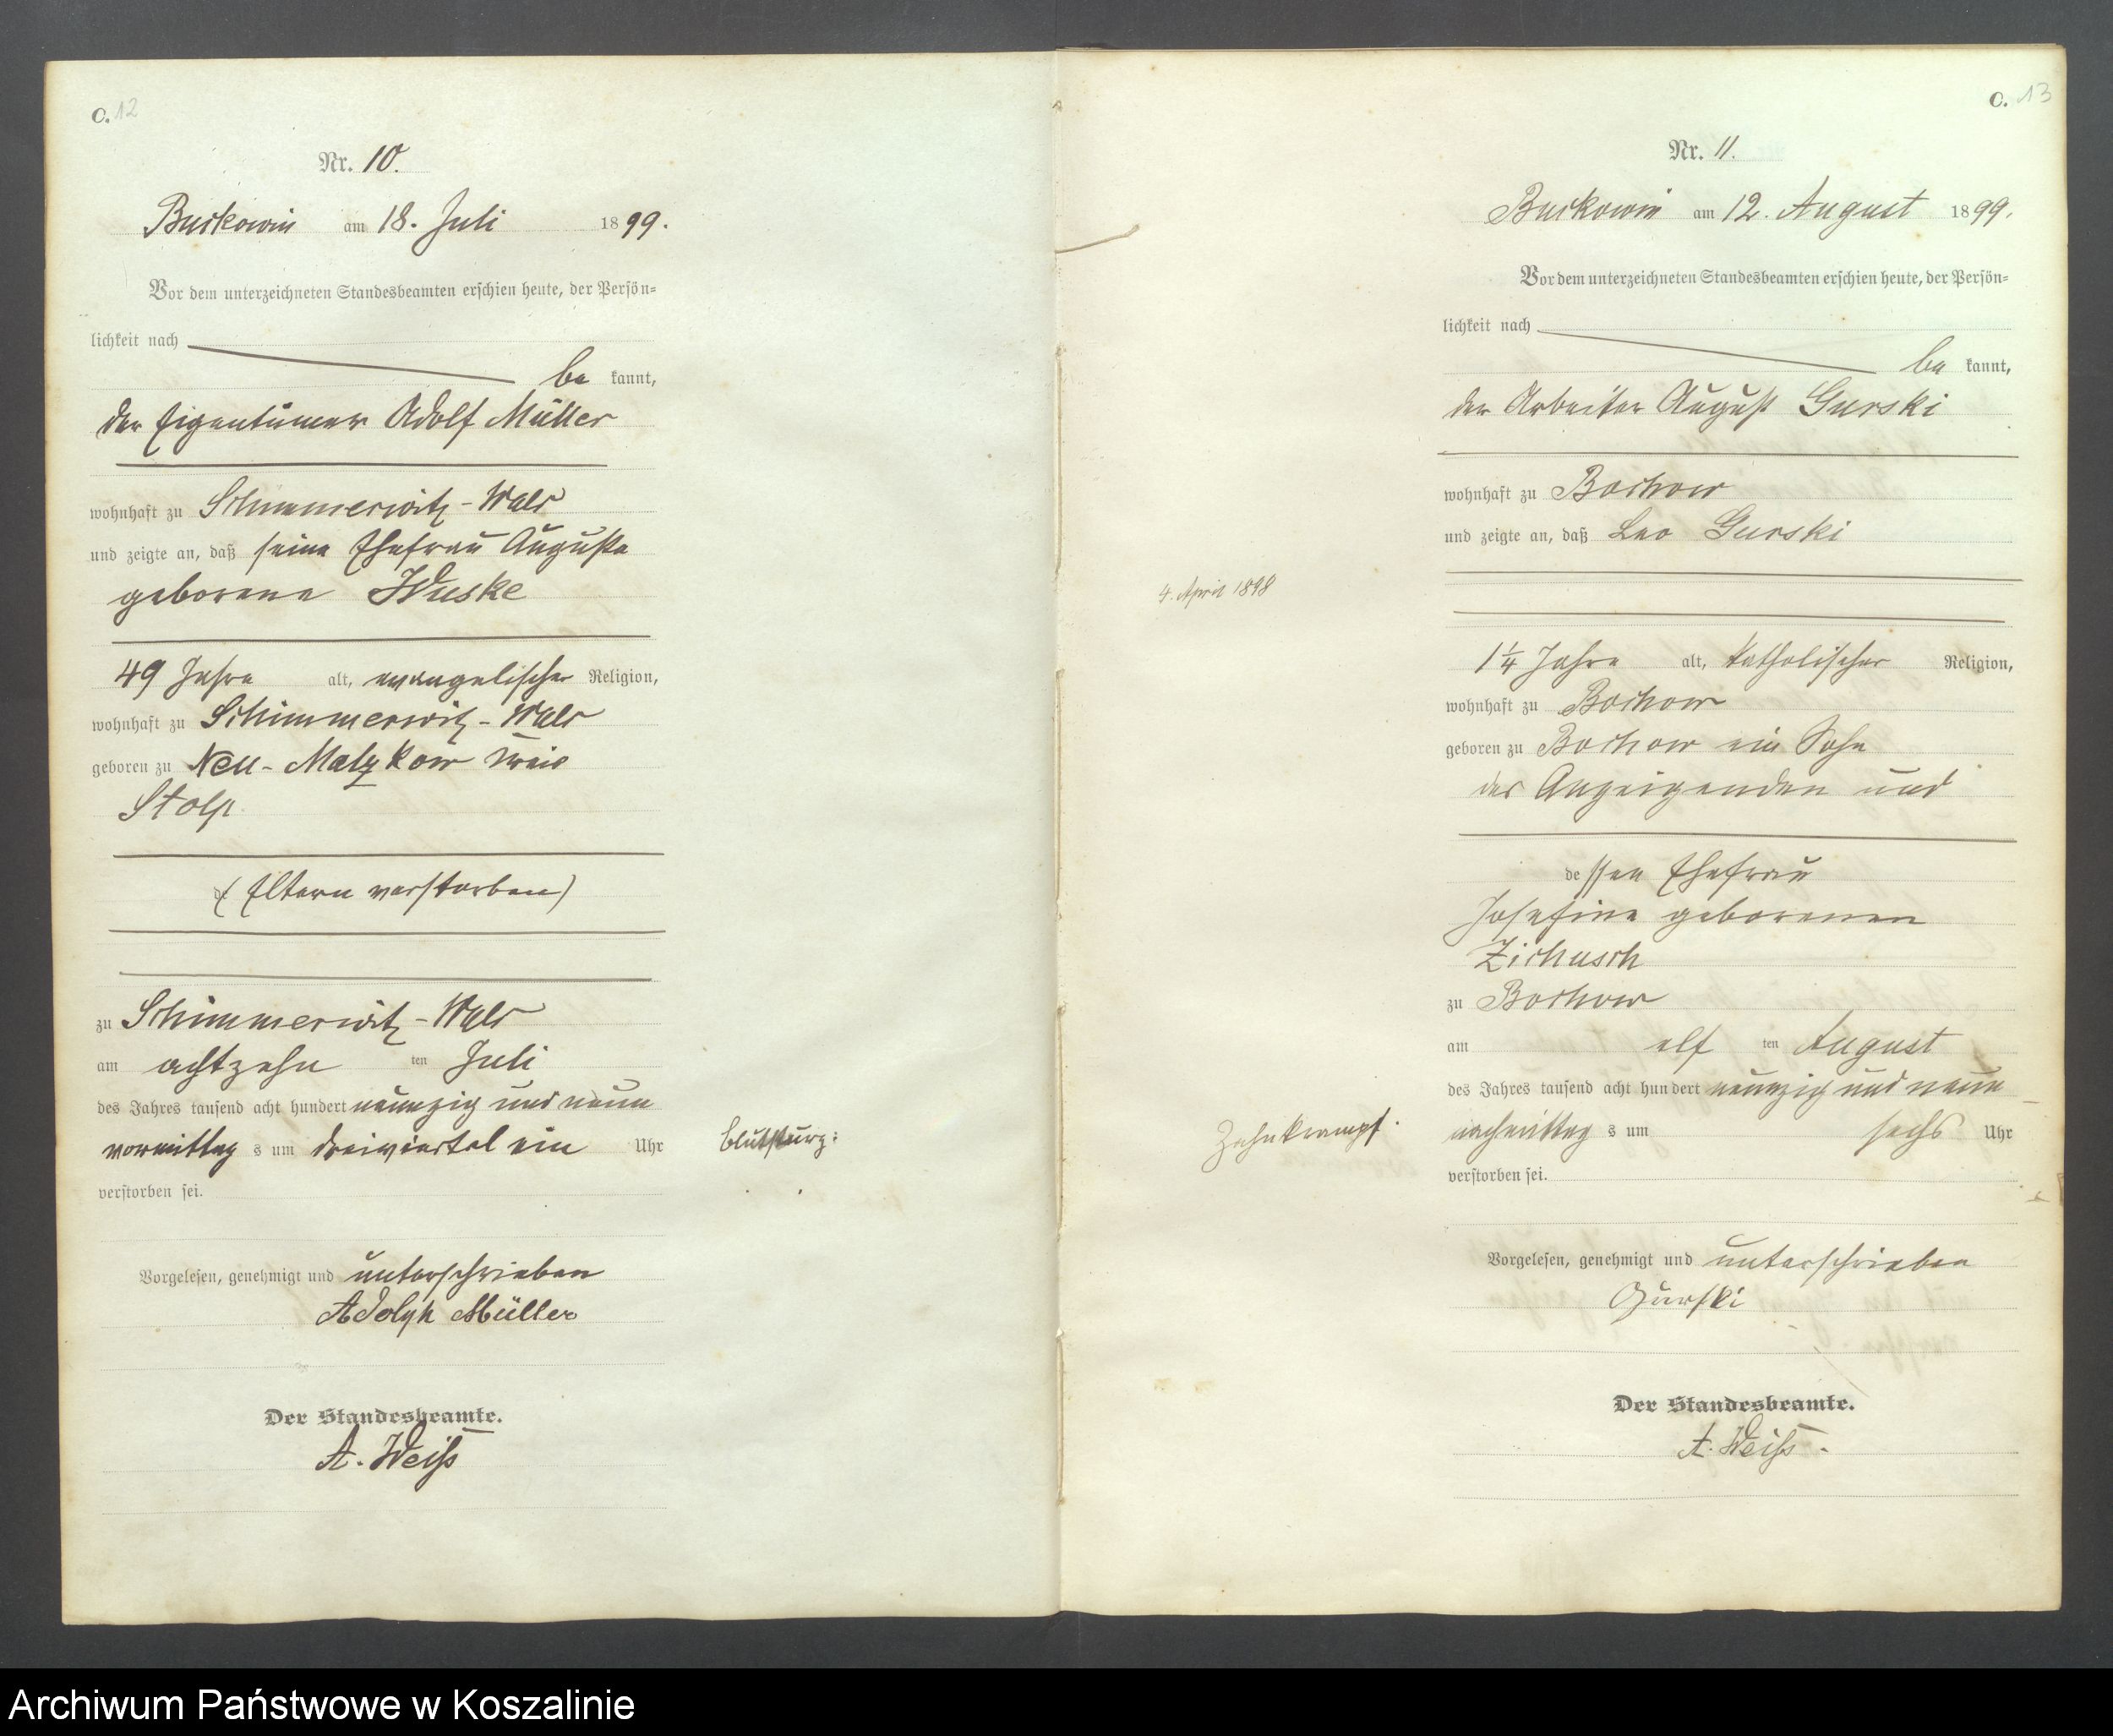 C. 12
Nr. 10.
Buckowin am 18. Juli 1899.
Vor dem unterzeichneten Standesbeamten erschien heute, der Persön-
lichkeit nach
be kannt,
der Eigentümer Adolf Müller
wohnhaft zu Schimmerwitz-Wald
und zeigte an, daß seine Ehefrau Auguste
geborene Wuske
49 Jahre alt, evangelischer Religion,
wohnhaft zu Schimmerwitz-Wald
geboren zu Neu-Malzkow Kreis
Stolp
(Eltern verstorben)
zu Schimmerwitz-Wald
am achtzehn ten Juli
des Jahres tausend acht hundert neunzig und neun
vormittag s um dreiviertel ein Uhr
Blutsturz:
verstorben sei.
Vorgelesen, genehmigt und unterschrieben
Adolph Müller
Der Standesbeamte.
A. Weiß
C. 13
Nr. 11.
Buckowin am 12. August 1899.
Vor dem unterzeichneten Standesbeamten erschien heute, der Persön-
lichkeit nach
be kannt,
der Arbeiter August Gurski
wohnhaft zu Bochow
und zeigte an, daß Leo Gurski
4. April 1898
1 1/4 Jahre alt, katholischer Religion,
wohnhaft zu Bochow
geboren zu Bochow ein Sohn
des Anzeigenden und
de ssen Ehefrau
Josefine geborenen
Zichusch
zu Bochow
am elf ten August
des Jahres tausend acht hundert neunzig und neun
Zahnkrampf.
nachmittag s um sechs Uhr
verstorben sei.
Vorgelesen, genehmigt und unterschrieben
Gurski
Der Standesbeamte.
A. Weiß.
Archiwum Państwowe w Koszalinie